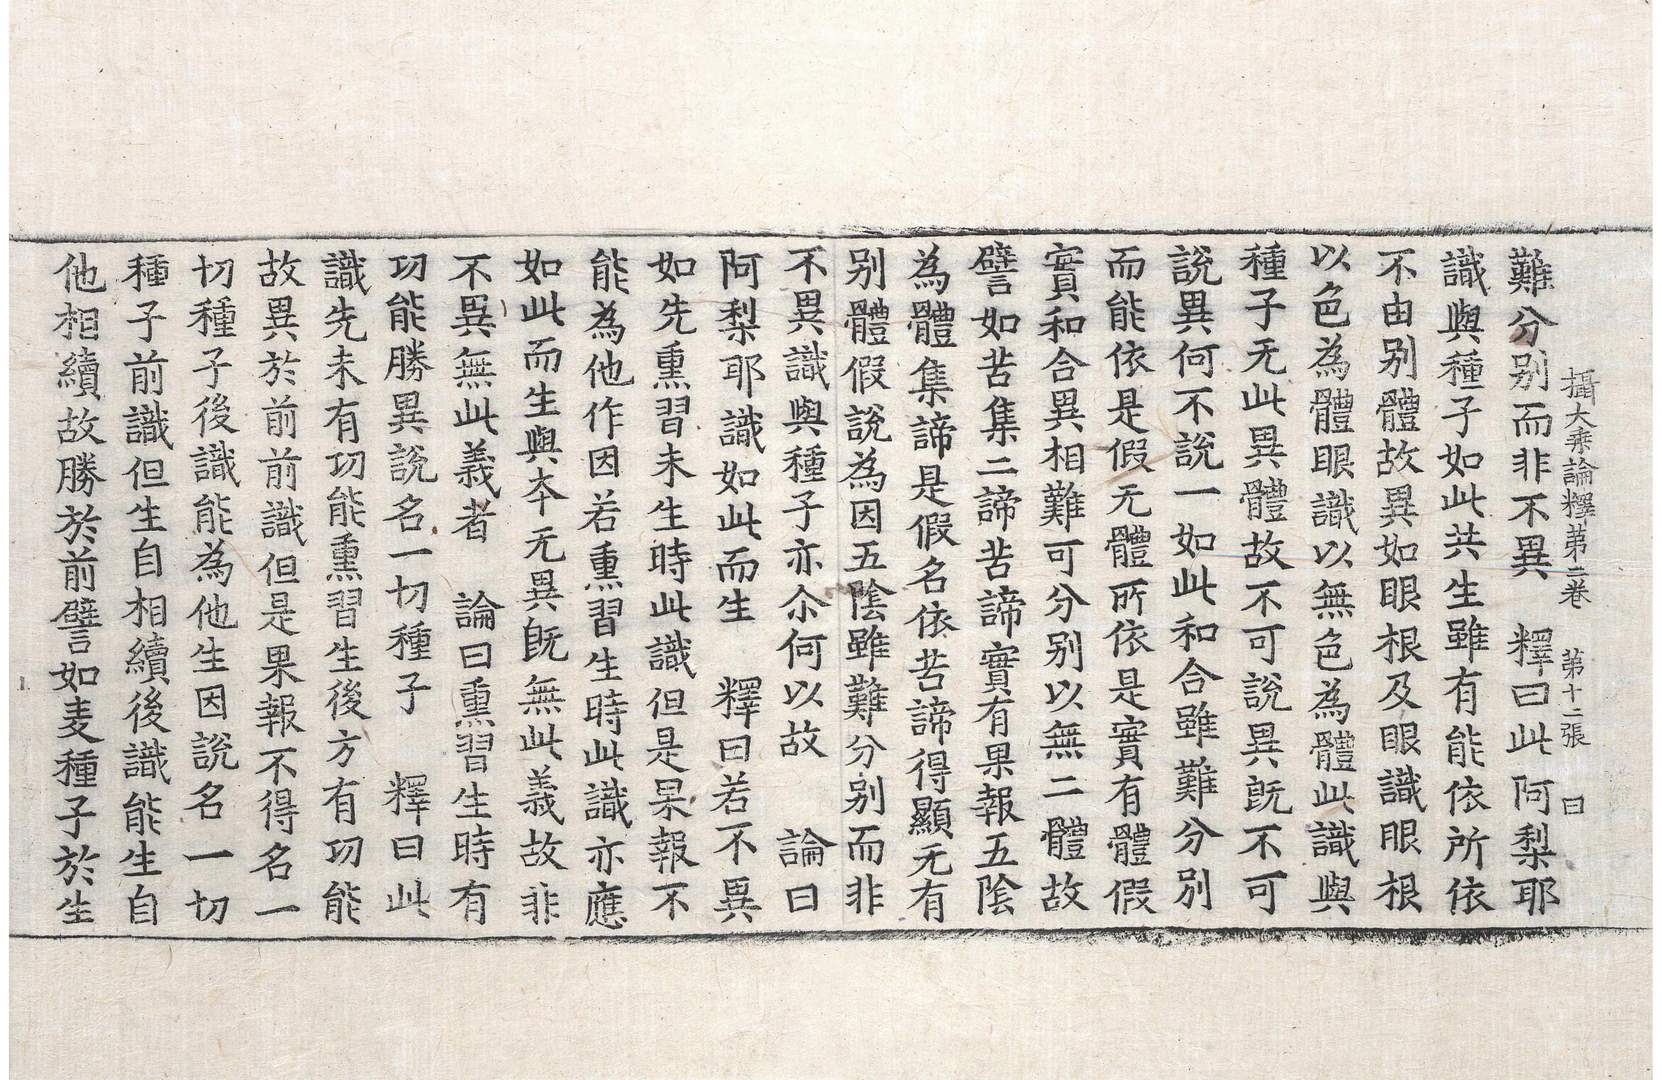 攝大乘論釋第二卷　第十二張　曰
難分別而非不異　釋曰此阿梨耶
識與種子如此共生雖有能依所依
不由別體故異如眼根及眼識眼根
以色為體眼識以無色為體此識與
種子无此異體故不可說異旣不可
說異何不說一如此和合雖難分別
而能依是假无體所依是實有體假
實和合異相難可分別以無二體故
譬如苦集二諦苦諦實有果報五陰
為體集諦是假名依苦諦得顯无有
別體假說為因五陰雖難分別而非
不異識與種子亦尒何以故　論曰
阿梨耶識如此而生　釋曰若不異
如先熏習未生時此識但是果報不
能為他作因若熏習生時此識亦應
如此而生與本无異旣無此義故非
不異無此義者　論曰熏習生時有
功能勝異說名一切種子　釋曰此
識先未有功能熏習生後方有功能
故異於前前識但是果報不得名一
切種子後識能為他生因說名一切
種子前識但生自相續後識能生自
他相續故勝於前譬如麦種子於生